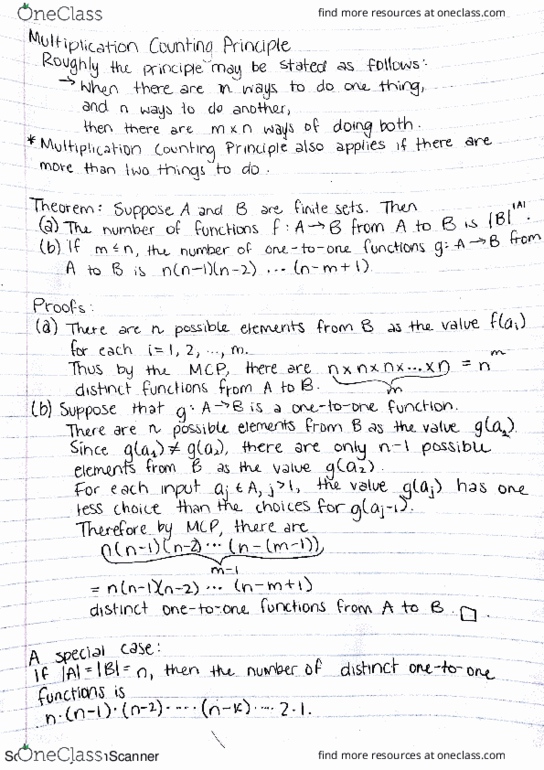 OneClass find more resources at oneclass.com
Multiplication Counting Principle
Roughly the principle may be stated as follows:
→ When there are m ways to do one thing,
and n ways to do another,
then there are m×n ways of doing both.
* Multiplication Counting Principle also applies if there are
more than two things to do.
Theorem: Suppose A and B are finite sets. Then
(a) The number of functions f: A→B from A to B is |B|^|A|.
(b) If m ≤ n, the number of one-to-one functions g: A→B from
A to B is n(n-1)(n-2) ... (n-m+1)
Proofs:
(a) There are n possible elements from B as the value f(a₁)
for each i = 1, 2, ..., m.
Thus by the MCP, there are n×n×n×...×n = n^m
m
distinct functions from A to B.
(b) Suppose that g: A→B is a one-to-one function.
There are n possible elements from B as the value g(a₂).
Since g(a₁) ≠ g(a₂), there are only n-1 possible
elements from B as the value g(a₂).
For each input aj ∈ A, j>1, the value g(aj) has one
less choice than the choices for g(aj-1).
Therefore by MCP, there are
n(n-1)(n-2) ... (n-(m-1))
m-1
= n(n-1)(n-2) ... (n-m+1)
distinct one-to-one functions from A to B. □
A special case:
If |A|=|B|=n, then the number of distinct one-to-one
functions is
n·(n-1)·(n-2)·...·(n-k)·...·2·1.
OneClass Scanner find more resources at oneclass.com